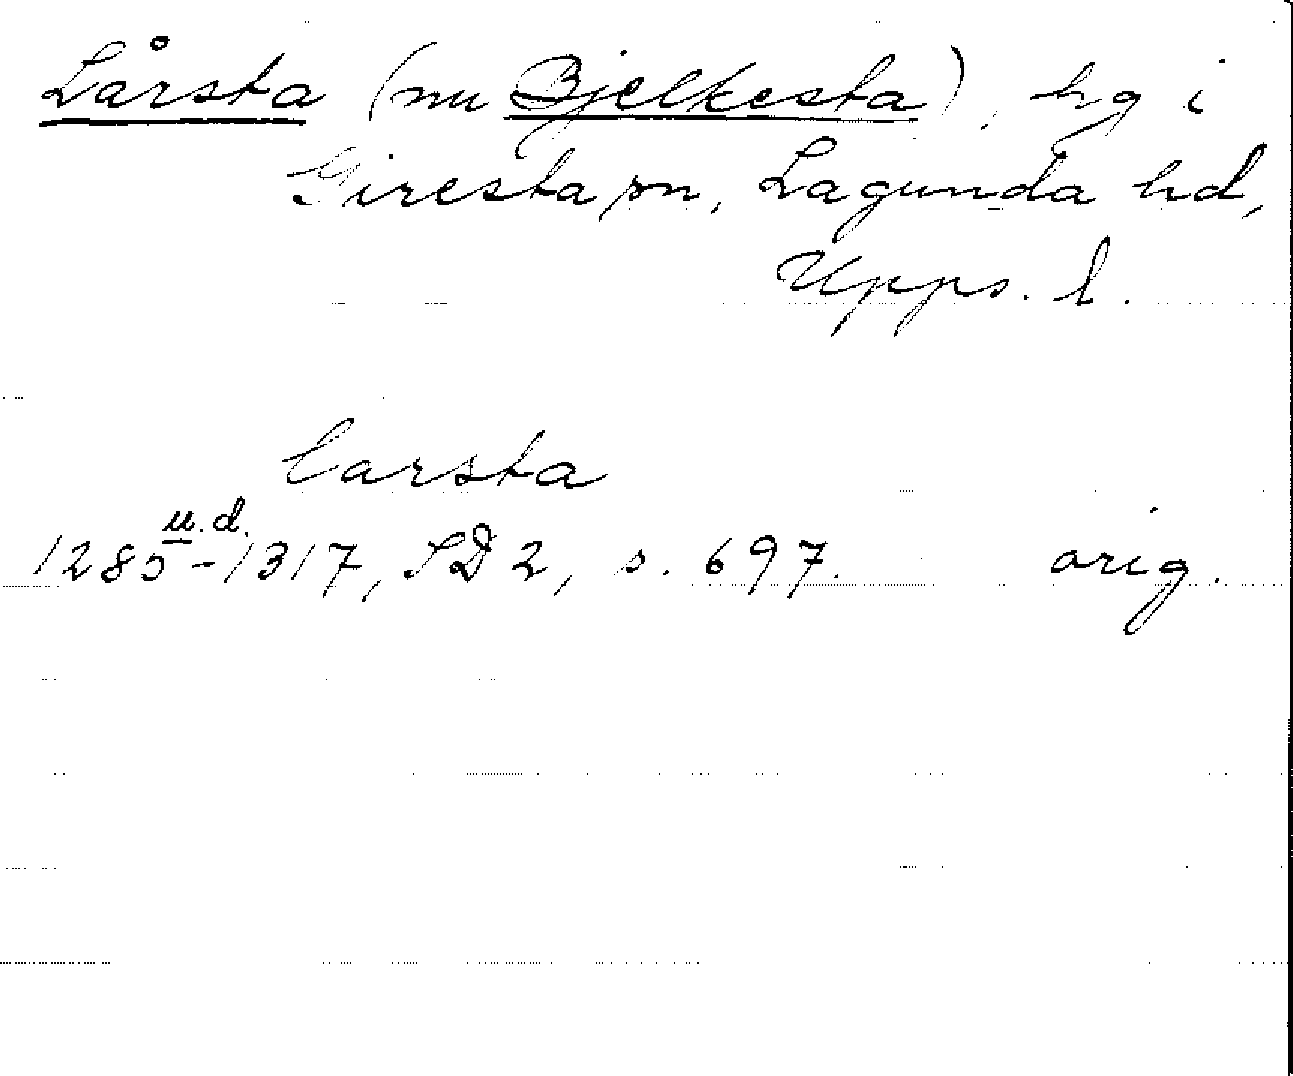 Lårsta (nu Bjelkesta), hg i
Giresta sn, Lagunda hd,
Upps. l.
larsta
u.d.
1285-1317, SD 2, s. 697. orig.